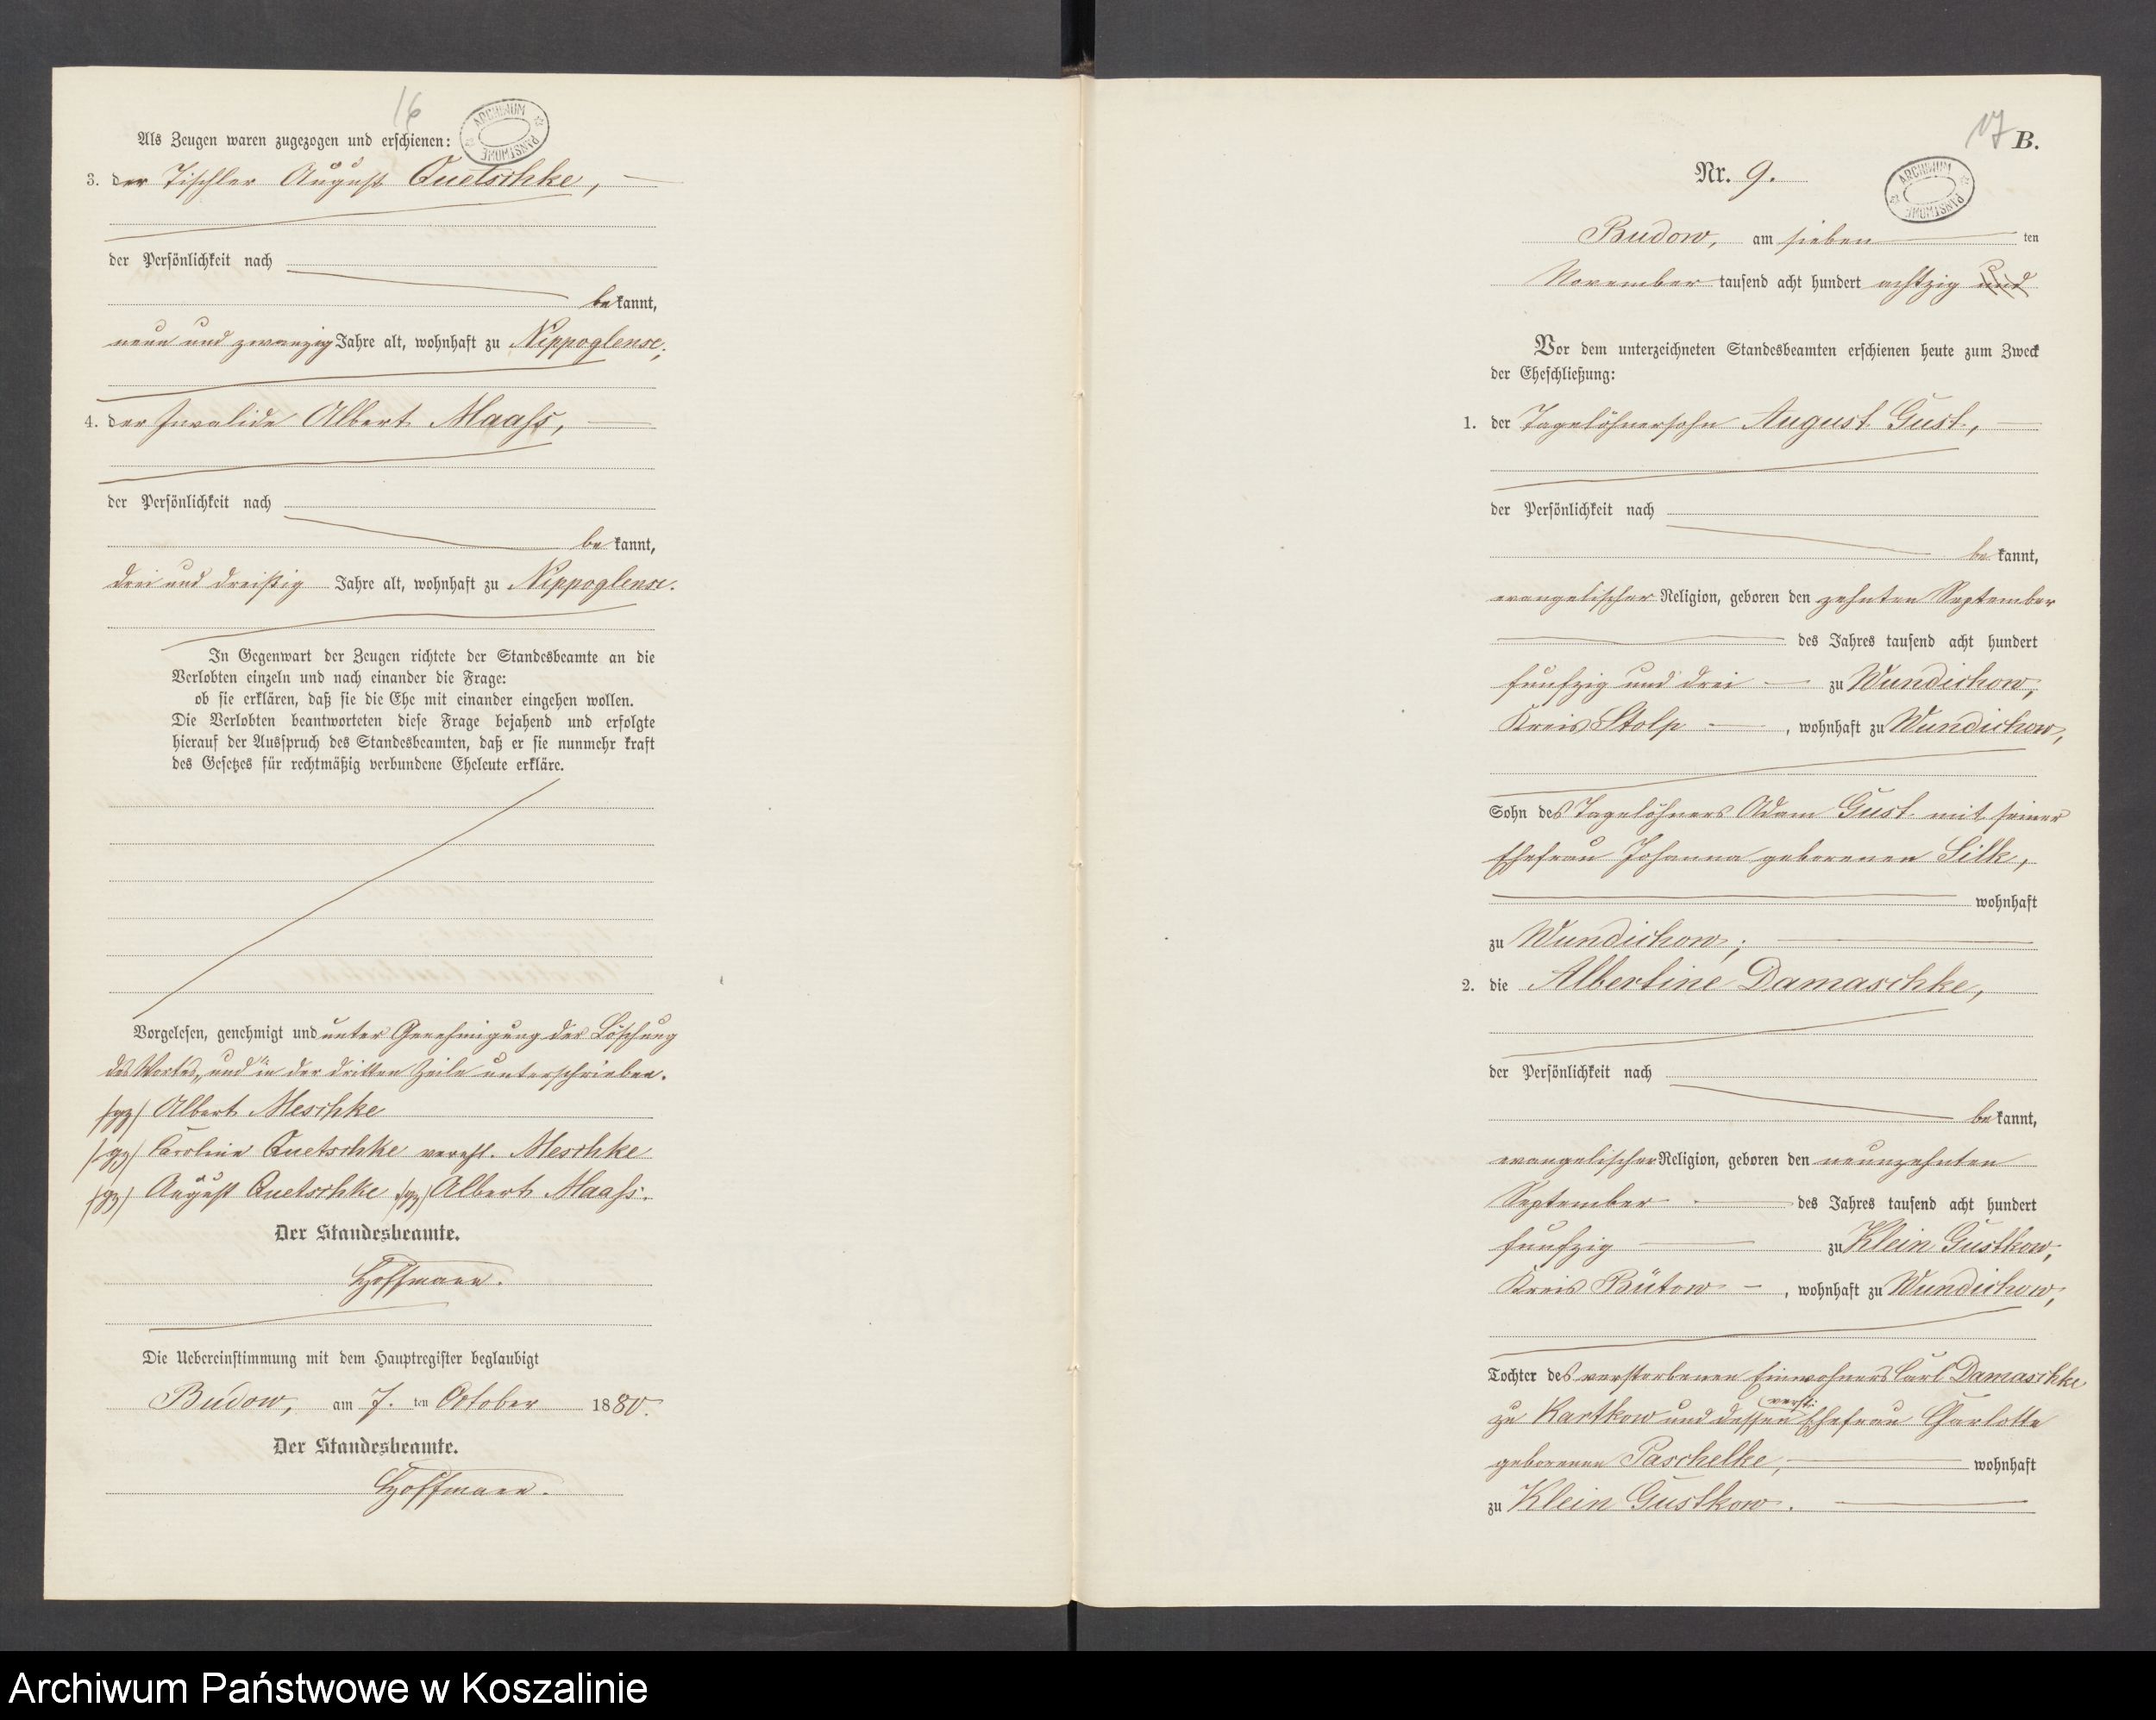 16
ARCHIWUM PAŃSTWOWE
Als Zeugen waren zugezogen und erschienen:
3. der Tischler August Quetschke,
der Persönlichkeit nach
bekannt,
neun und zwanzig Jahre alt, wohnhaft zu Nippoglense;
4. der Invalide Albert Maaß,
der Persönlichkeit nach
be kannt,
drei und dreißig Jahre alt, wohnhaft zu Nippoglense.
In Gegenwart der Zeugen richtete der Standesbeamte an die
Verlobten einzeln und nach einander die Frage:
ob sie erklären, daß sie die Ehe mit einander eingehen wollen.
Die Verlobten beantworteten diese Frage bejahend und erfolgte
hierauf der Ausspruch des Standesbeamten, daß er sie nunmehr kraft
des Gesetzes für rechtmäßig verbundene Eheleute erkläre.
Vorgelesen, genehmigt und unter Genehmigung der Löschung
des Wortes „und“ in der dritten Zeile unterschrieben.
/gz/ Albert Meschke
/gz/ Karoline Quetschke verehl. Meschke
/gz/ August Quetschke /gz/ Albert Maaß.
Der Standesbeamte.
Hoffmann.
Die Uebereinstimmung mit dem Hauptregister beglaubigt
Budow, am 7. ten October 1880.
Der Standesbeamte.
Hoffmann.
17 B.
Nr. 9.
ARCHIWUM PAŃSTWOWE
Budow, am sieben ten
November tausend acht hundert achtzig und
Vor dem unterzeichneten Standesbeamten erschienen heute zum Zweck
der Eheschließung:
1. der Tagelöhnersohn August Gust,
der Persönlichkeit nach
be kannt,
evangelischer Religion, geboren den zehnten September
des Jahres tausend acht hundert
funfzig und drei zu Wundichow,
Kreis Stolp, wohnhaft zu Wundichow,
Sohn des Tagelöhners Adam Gust mit seiner
Ehefrau Johanna geborenen Silk,
wohnhaft
zu Wundichow;
2. die Albertine Damaschke,
der Persönlichkeit nach
bekannt,
evangelischer Religion, geboren den neunzehnten
September des Jahres tausend acht hundert
funfzig zu Klein Gustkow,
Kreis Bütow, wohnhaft zu Wundichow,
Tochter des verstorbenen Einwohners Carl Damaschke
zu Kartkow und dessen verst: Ehefrau Charlotte
geborenen Paschelke, wohnhaft
zu Klein Gustkow.
Archiwum Państwowe w Koszalinie